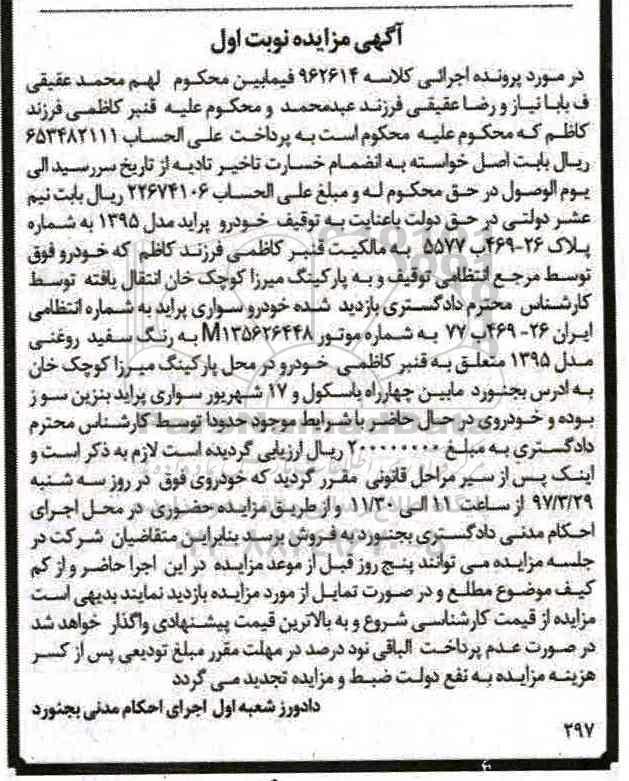 آگهی مزایده نوبت اول
در مورد پرونده اجرائی کلاسه ۹۶۲۶۱۴ فیمابین محکوم لهم محمد عقیقی
ف بابا نیاز و رضا عقیقی فرزند عبدمحمد و محکوم علیه قنبر کاظمی فرزند
کاظم که محکوم علیه محکوم است به پرداخت علی الحساب ۶۵۳۴۸۲۱۱۱
ریال بابت اصل خواسته به انضمام خسارت تاخیر تادیه از تاریخ سررسید الی
یوم الوصول در حق محکوم له و مبلغ علی الحساب ۲۲۶۷۴۱۰۶ ریال بابت نیم
عشر دولتی در حق دولت باعنایت به توقیف خودرو پراید مدل ۱۳۹۵ به شماره
پلاک ۲۶-۴۶۹ب ۵۵۷۷ به مالکیت قنبر کاظمی فرزند کاظم که خودرو فوق
توسط مرجع انتظامی توقیف و به پارکینگ میرزا کوچک خان انتقال یافته توسط
کارشناس محترم دادگستری بازدید شده خودرو سواری پراید به شماره انتظامی
ایران ۲۶- ۴۶۹ب ۷۷ به شماره موتور M۱۳۵۶۲۶۴۴۸ به رنگ سفید روغنی
مدل ۱۳۹۵ متعلق به قنبر کاظمی خودرو در محل پارکینگ میرزا کوچک خان
به ادرس بجنورد مابین چهارراه باسکول و ۱۷ شهریور سواری پراید بنزین سوز
بوده و خودروی در حال حاضر با شرایط موجود حدودا توسط کارشناس محترم
دادگستری به مبلغ ۲۰۰۰۰۰۰۰۰ ریال ارزیابی گردیده است لازم به ذکر است و
اینک پس از سیر مراحل قانونی مقرر گردید که خودروی فوق در روز سه شنبه
۹۷/۳/۲۹ از ساعت ۱۱ الی ۱۱/۳۰ و از طریق مزایده حضوری در محل اجرای
احکام مدنی دادگستری بجنورد به فروش برسد بنابراین متقاضیان شرکت در
جلسه مزایده می توانند پنج روز قبل از موعد مزایده در این اجرا حاضر و از کم
کیف موضوع مطلع و در صورت تمایل از مورد مزایده بازدید نمایند بدیهی است
مزایده از قیمت کارشناسی شروع و به بالاترین قیمت پیشنهادی واگذار خواهد شد
در صورت عدم پرداخت الباقی نود درصد در مهلت مقرر مبلغ تودیعی پس از کسر
هزینه مزایده به نفع دولت ضبط و مزایده تجدید می گردد
دادورز شعبه اول اجرای احکام مدنی بجنورد
۲۹۷